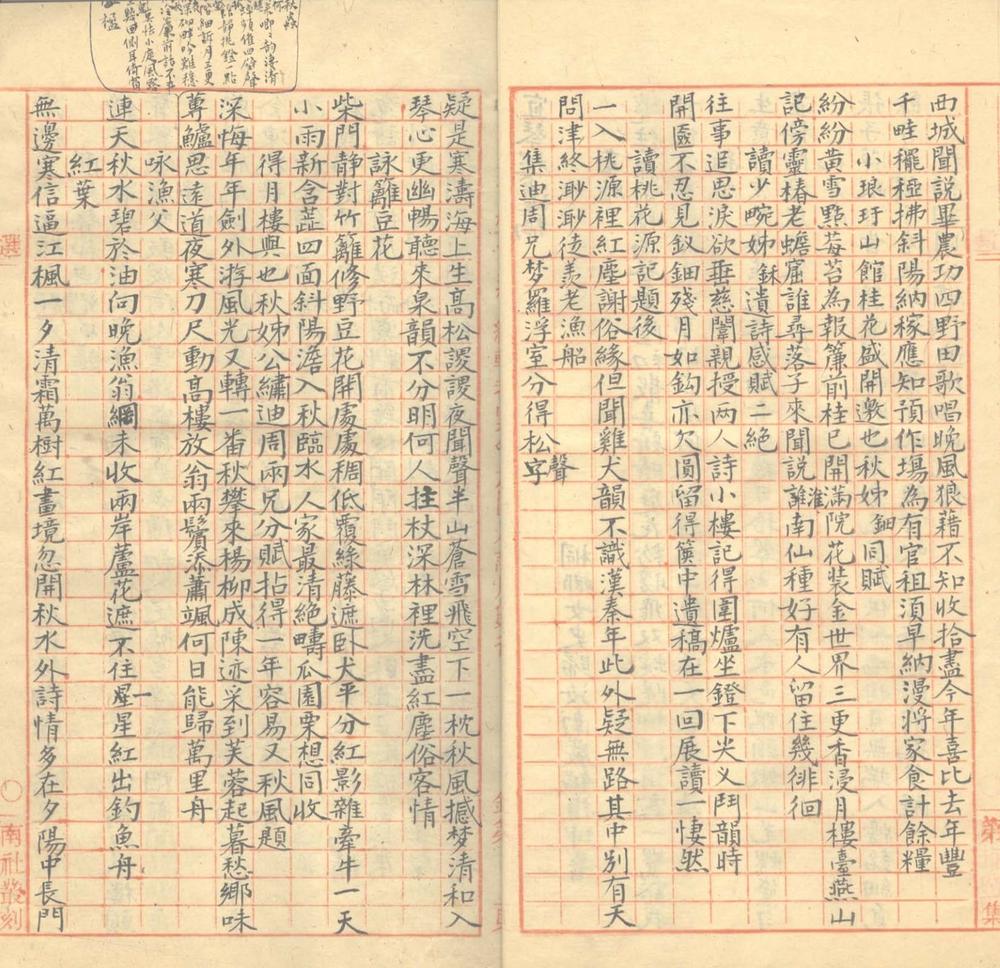 西城聞說畢農功四野田歌唱晚風狼藉不知收拾盡今年喜比去年豐
千畦穲稏拂斜陽納稼應知預作場為有官租須早納漫將家食計餘糧
小琅玕山館桂花盛開邀也秋姊鈿同賦
紛紛黃雪點莓苔為報簾前桂已開滿院花裝金世界三更香浸月樓臺燕山
記傍靈椿老蟾窟誰尋落子來聞說淮南仙種好有人留住幾徘徊
讀少畹姊鉌遺詩感賦二絕
往事追思淚欲垂慈闈親授两人詩小樓記得圍爐坐鐙下尖义鬥韻時
開匳不忍見釵鈿殘月如鈎亦欠圓留得篋中遺稿在一回展讀一悽然
讀桃花源記題後
一入桃源裡紅塵謝俗緣但聞雞犬韻不識漢秦年此外疑無路其中別有天
問津終渺渺徒羨老漁船
集迪周兄梦羅浮室分得松聲字
疑是寒濤海上生高松謖謖夜聞聲半山蒼雪飛空下一枕秋風撼梦清和入
琴心更幽暢聽來泉韻不分明何人拄杖深林裡洗盡紅塵俗客情
詠籬豆花
柴門靜對竹籬修野豆花開處處稠低覆絲藤遮卧犬平分紅影雜牽牛一天
小雨新含蕋四面斜陽澹入秋臨水人家最清絕疇瓜園栗想同收
得月樓與也秋姊公繡迪周兩兄分賦拈得一年容易又秋風題
深悔年年劍外游風光又轉一番秋攀來楊柳成陳迹采到芙蓉起暮愁鄉味
蓴鱸思遠道夜寒刀尺動高樓放翁兩鬢添蕭颯何日能歸萬里舟
咏漁父
連天秋水碧於油向晚漁翁網未收兩岸蘆花遮不住一星星紅出釣魚舟
紅葉
無邊寒信逼江楓一夕清霜萬樹紅畫境忽開秋水外詩情多在夕陽中長門
選
南社叢刻
第
集